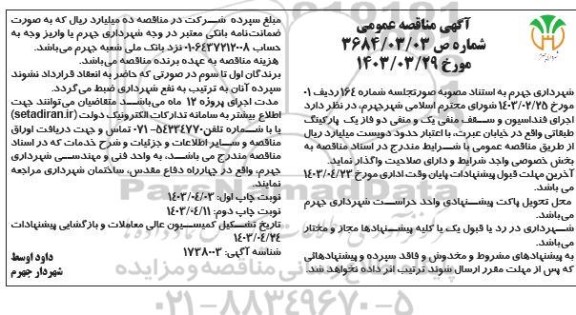 آگهی مناقصه عمومی
شماره ص ۳۶۸۴/۰۳/۰۳
مورخ ۱۴۰۳/۰۳/۲۹
شهرداری جهرم به استناد مصوبه صورتجلسه شماره ۱۶۴ ردیف ۰۱
۱۴۰۳/۰۲/۲۵ شورای محترم اسلامی شهرجهرم، در نظر دارد
اجرای فنداسیون و سقف منفی یک و منفی دو فاز یک پارکینگ
طبقاتی واقع در خیابان عبرت، با اعتبار حدود دویست میلیارد ریال
از طریق مناقصه عمومی با شرایط مندرج در اسناد مناقصه به
بخش خصوصی واجد شرایط و دارای صلاحیت واگذار نماید.
آخرین مهلت قبول پیشنهادات پایان وقت اداری مورخ ۱۴۰۳/۰۴/۲۳
می باشد.
محل تحویل پاکت پیشنهادی واحد حراست شهرداری جهرم
می‌باشد.
شهرداری در رد یا قبول یک یا کلیه پیشنهادها مجاز و مختار
می‌باشد.
به پیشنهادهای مشروط و مخدوش و فاقد سپرده و پیشنهادهائی
که پس از مهلت مقرر ارسال شوند ترتیب اثر داده نخواهد شد.
مبلغ سپرده شرکت در مناقصه ده میلیارد ریال که به صورت
ضمانت‌نامه بانکی معتبر در وجه شهرداری جهرم یا واریز وجه به
حساب ۰۱۰۶۴۳۷۲۱۲۰۰۸ نزد بانک ملی شعبه جهرم می‌باشد.
هزینه مناقصه به عهده برنده مناقصه می‌باشد.
برندگان اول تا سوم در صورتی که حاضر به انعقاد قرارداد نشوند
سپرده آنان به ترتیب به نفع شهرداری ضبط می‌گردد.
مدت اجرای پروژه ۱۲ ماه می‌باشد متقاضیان می‌توانند جهت
اطلاع بیشتر به سامانه تدارکات الکترونیک دولت (setadiran.ir)
یا با شماره تلفن ۵۴۳۳۴۷۷۰-۰۷۱ تماس و جهت دریافت اوراق
مناقصه و سایر اطلاعات و جزئیات و شرح خدمات که در اسناد
مناقصه مندرج می باشد، به واحد فنی و مهندسی شهرداری
جهرم، واقع در چهارراه دفاع مقدس، ساختمان شهرداری مراجعه
نمایند.
نوبت چاپ اول: ۱۴۰۳/۰۴/۰۳
نوبت چاپ دوم: ۱۴۰۳/۰۴/۱۱
تاریخ تشکیل کمیسیون عالی معاملات و بازگشایی پیشنهادات
۱۴۰۳/۰۴/۲۴
شناسه آگهی: ۱۷۳۸۰۰۳
داود اوسط
شهردار جهرم
۰۲۱-۸۸۳۴۹۶۷۰-۵